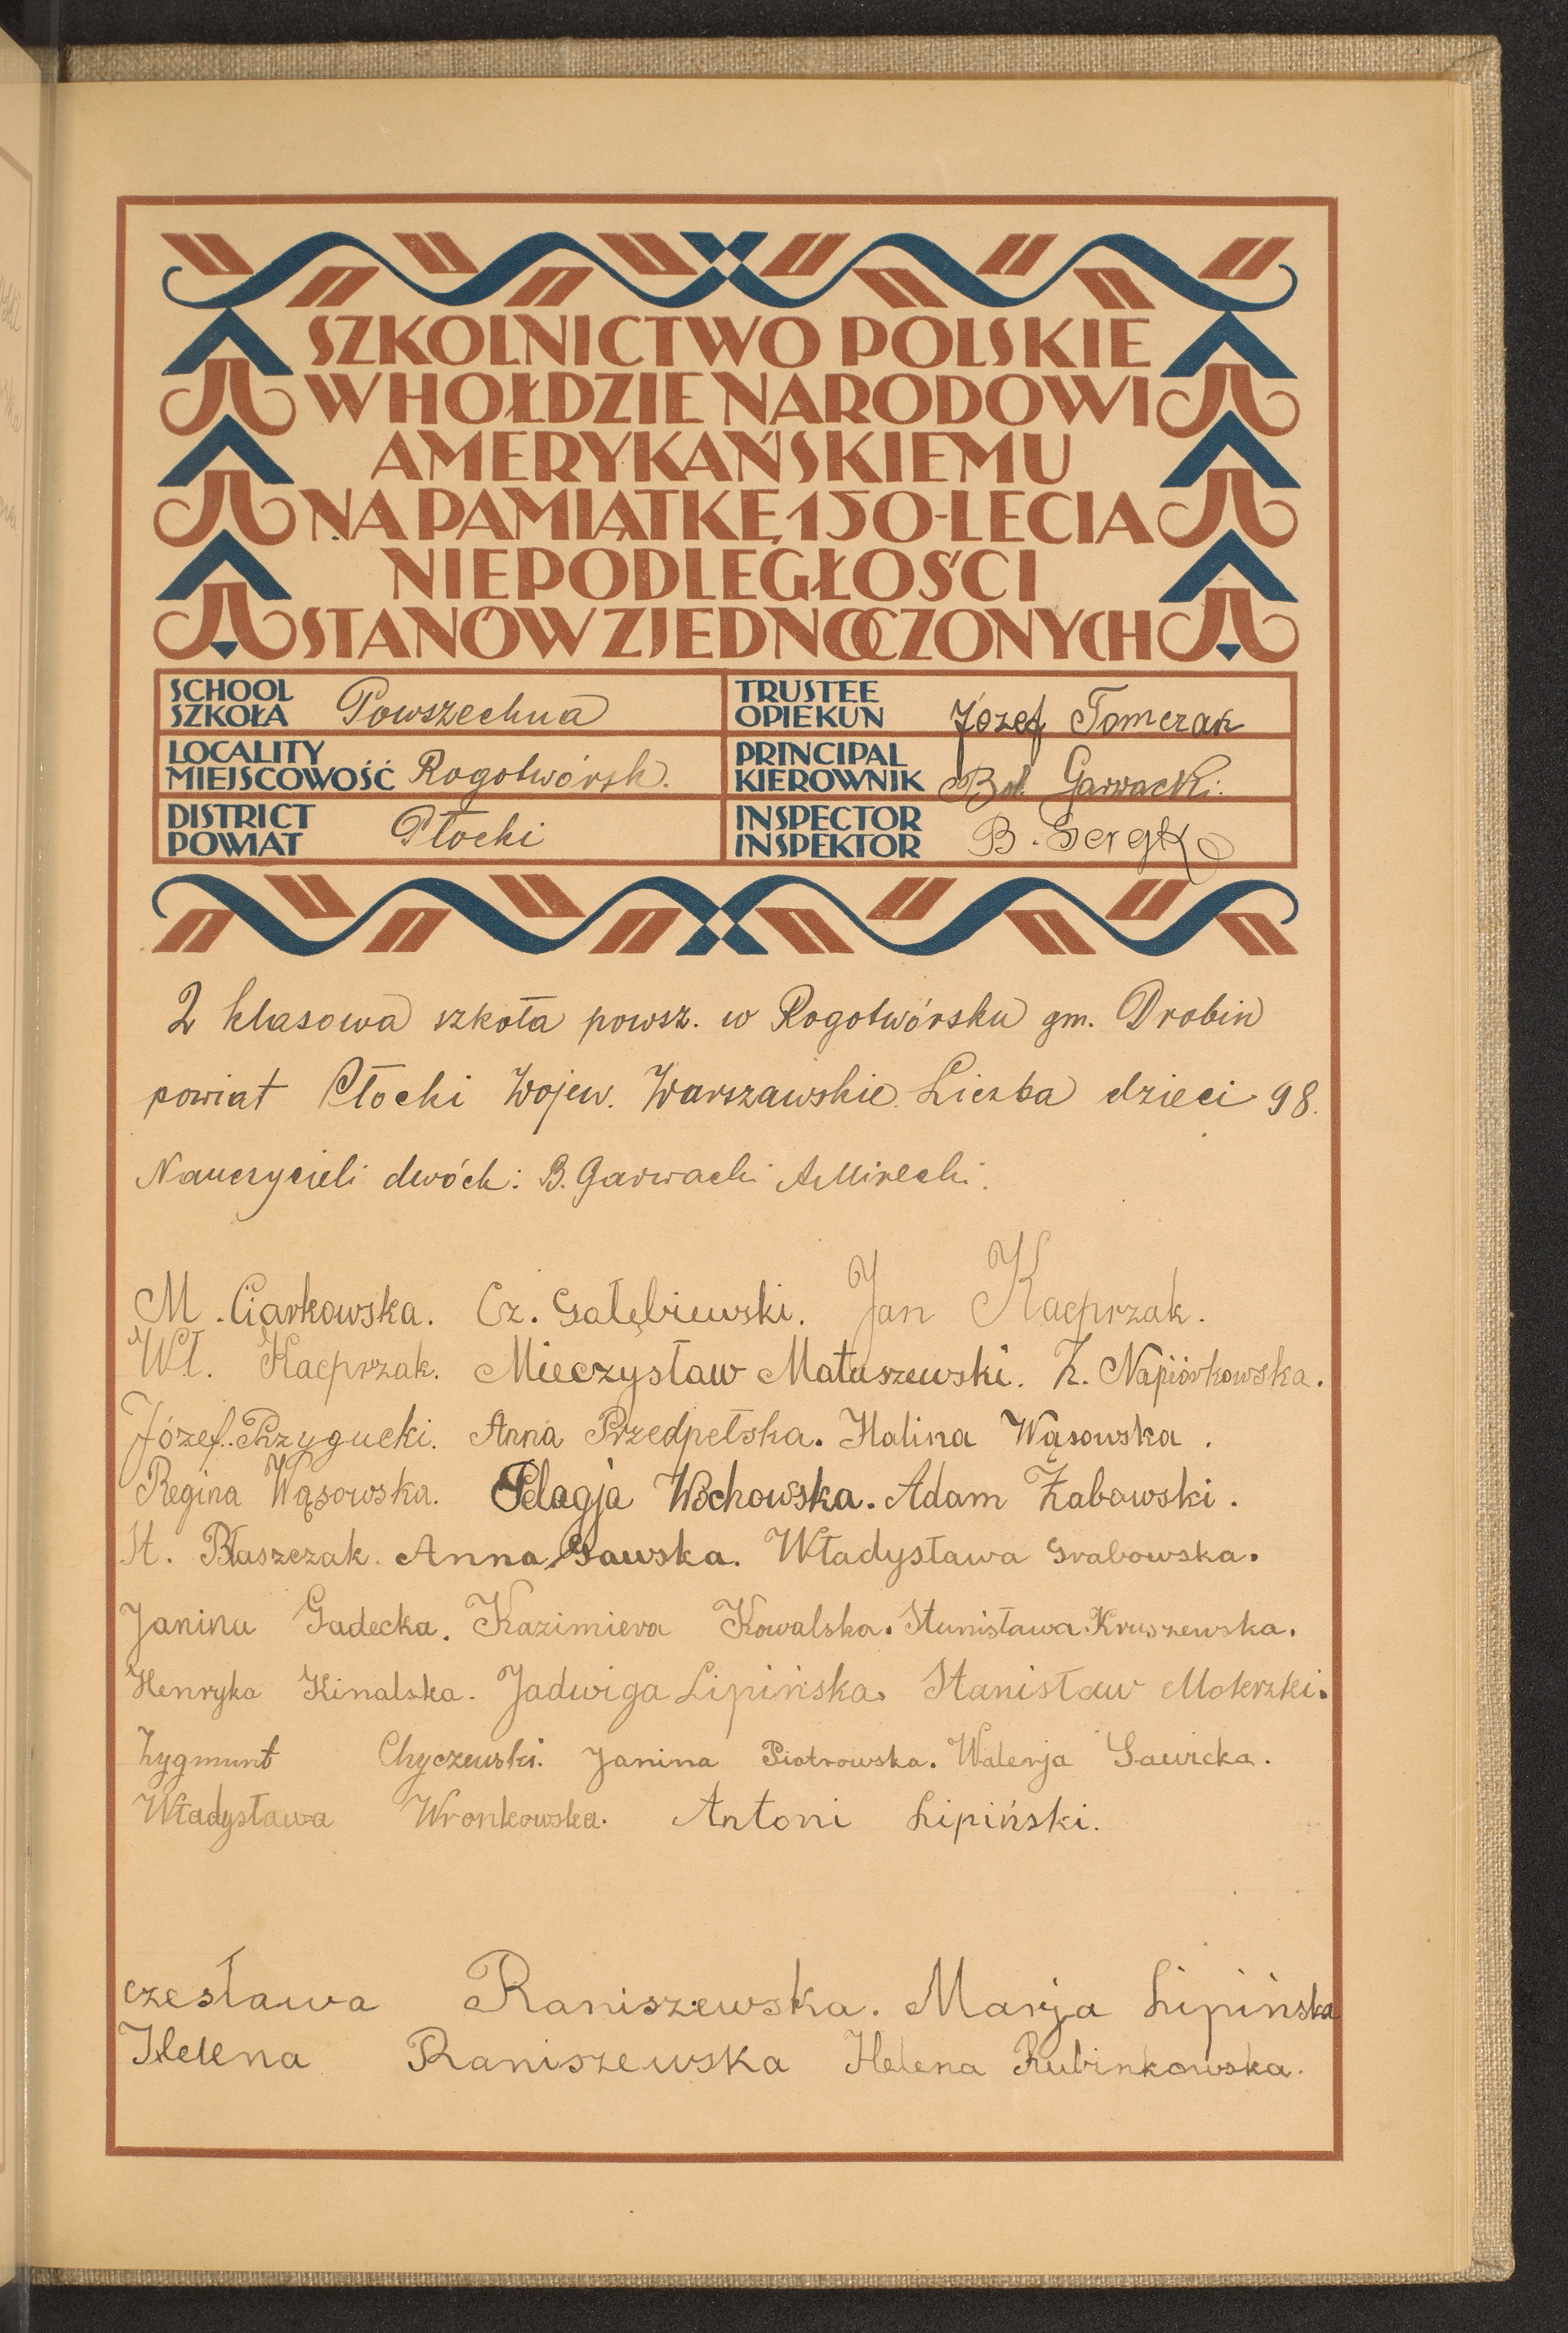 SZKOLNICTWO POLSKIE
W HOŁDZIE NARODOWI
AMERYKAŃSKIEMU
NA PAMIĄTKĘ 150-LECIA
NIEPODLEGŁOŚCI
STANÓW ZJEDNOCZONYCH
SCHOOL
SZKOŁA Powszechna
TRUSTEE
OPIEKUN Józef Tomczak
LOCALITY
MIEJSCOWOŚĆ Rogotwórsk.
PRINCIPAL
KIEROWNIK Bol. Garwacki.
DISTRICT
POWIAT Płocki
INSPECTOR
INSPEKTOR B.
2 klasowa szkoła powsz. w Rogotwórsku gm. Drobin
powiat Płocki Wojew. Warszawskie. Liczba dzieci 98.
Nauczycieli dwóch: B. Garwacki A Mirecki.
M. Ciarkowska. Cz. Gałębiewski. Jan Kacprzak.
Wł. Kacprzak. Mieczysław Matuszewski. Z. Napiórkowska.
Józef. Przygucki. Anna Przedpełska. Halina Wąsowska.
Regina Wąsowska. Pelagja Wochowska. Adam Żabowski.
St. Błaszczak. Anna Gawska. Władysława Grabowska.
Janina Gadecka. Kazimiera Kowalska. Stanisława Kruszewska.
Henryka Kinalska. Jadwiga Lipińska. Stanisław Mokrzki.
Zygmunt Chyczewski. Janina Piotrowska. Walerja Sawicka.
Władysława Wronkowska. Antoni Lipiński.
czesława Raniszewska. Marja Lipińska
Helena Raniszewska Helena Rubinkowska.